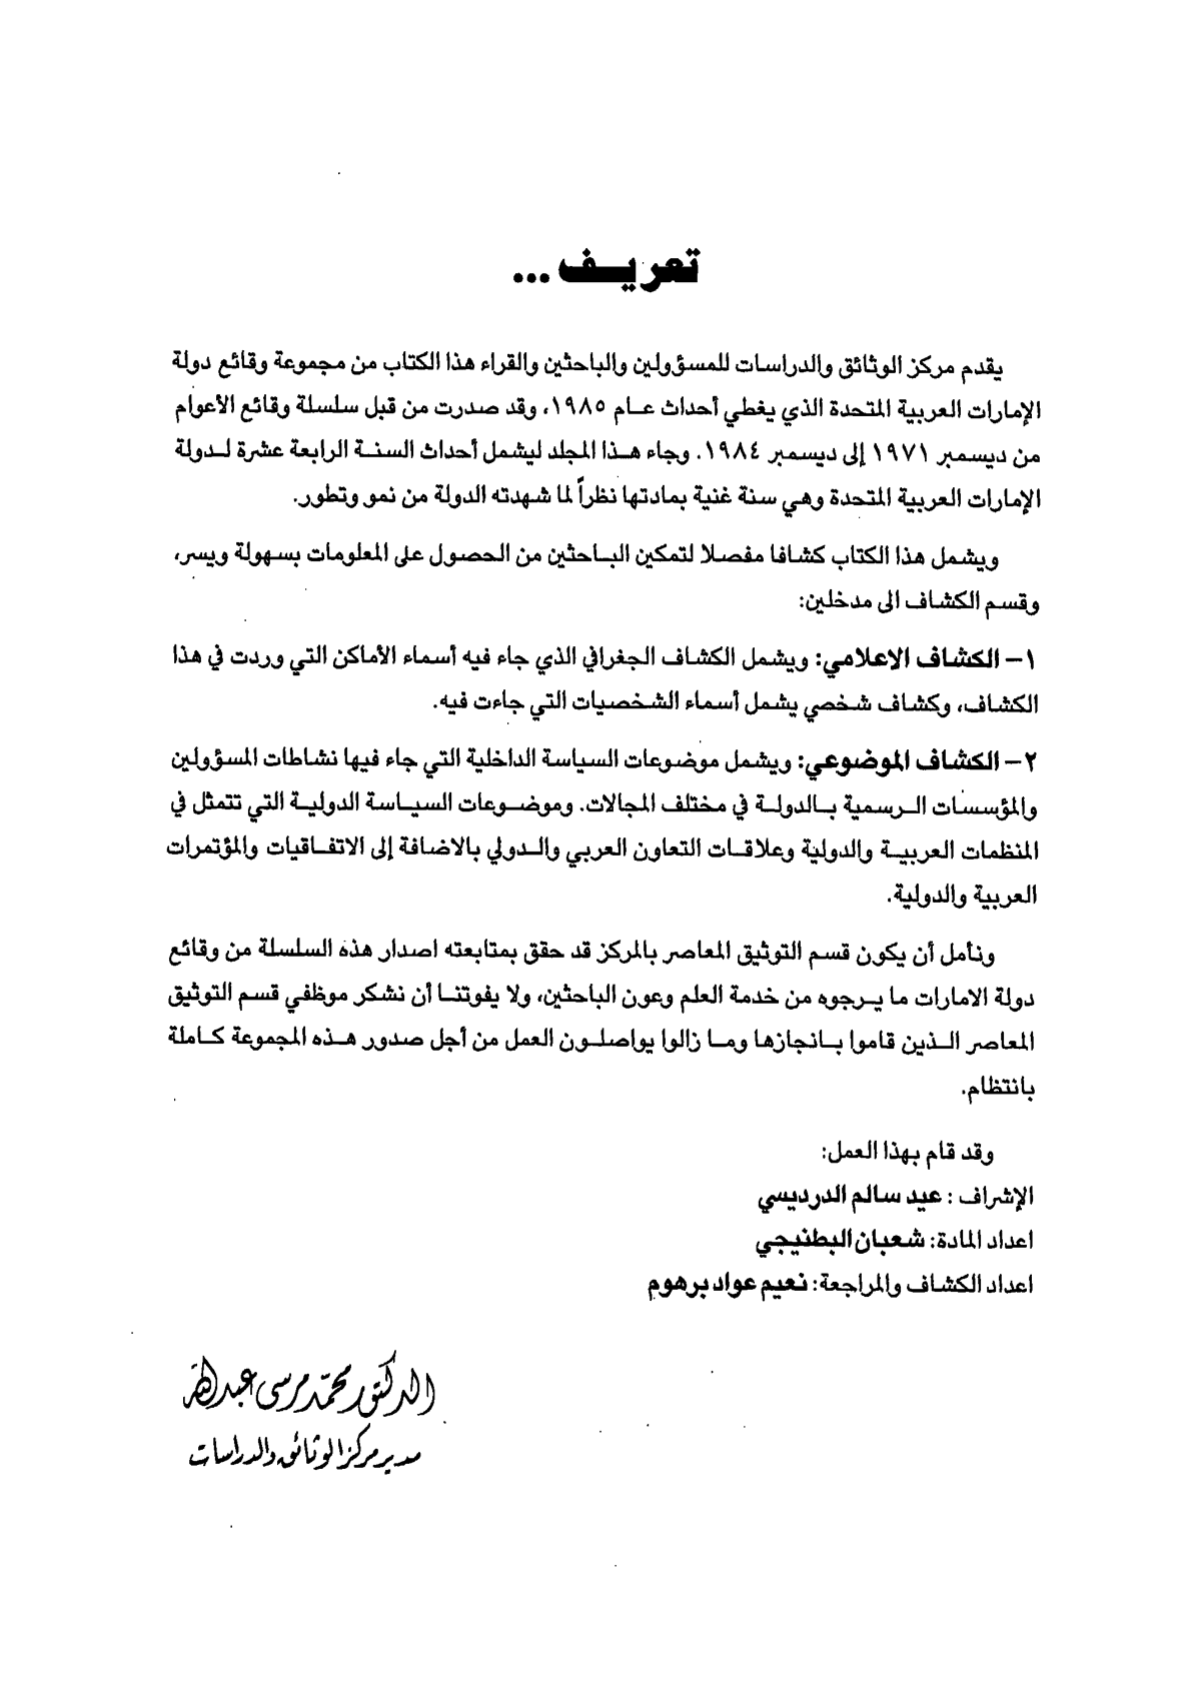 تعريف ...
يقدم مركز الوثائق والدراسات للمسؤولين والباحثين والقراء هذا الكتاب من مجموعة وقائع دولة
الإمارات العربية المتحدة الذي يغطي أحداث عام ١٩٨٥، وقد صدرت من قبل سلسلة وقائع الأعوام
من ديسمبر ١٩٧١ إلى ديسمبر ١٩٨٤. وجاء هذا المجلد ليشمل أحداث السنة الرابعة عشرة لدولة
الإمارات العربية المتحدة وهي سنة غنية بمادتها نظراً لما شهدته الدولة من نمو وتطور.
ويشمل هذا الكتاب كشافا مفصلا لتمكين الباحثين من الحصول على المعلومات بسهولة ويسر،
وقسم الكشاف الى مدخلين:
١- الكشاف الاعلامي: ويشمل الكشاف الجغرافي الذي جاء فيه أسماء الأماكن التي وردت في هذا
الكشاف، وكشاف شخصي يشمل أسماء الشخصيات التي جاءت فيه.
٢- الكشاف الموضوعي: ويشمل موضوعات السياسة الداخلية التي جاء فيها نشاطات المسؤولين
والمؤسسات الرسمية بالدولة في مختلف المجالات. وموضوعات السياسة الدولية التي تتمثل في
المنظمات العربية والدولية وعلاقات التعاون العربي والدولي بالاضافة إلى الاتفاقيات والمؤتمرات
العربية والدولية.
ونأمل أن يكون قسم التوثيق المعاصر بالمركز قد حقق بمتابعته اصدار هذه السلسلة من وقائع
دولة الامارات ما يرجوه من خدمة العلم وعون الباحثين، ولا يفوتنا أن نشكر موظفي قسم التوثيق
المعاصر الذين قاموا بانجازها وما زالوا يواصلون العمل من أجل صدور هذه المجموعة كاملة
بانتظام.
وقد قام بهذا العمل:
الإشراف : عيد سالم الدرديسي
اعداد المادة: شعبان البطنيجي
اعداد الكشاف والمراجعة: نعيم عواد برهوم
الدكتور محمد مرسى عبدالله
مدير مركز الوثائق والدراسات